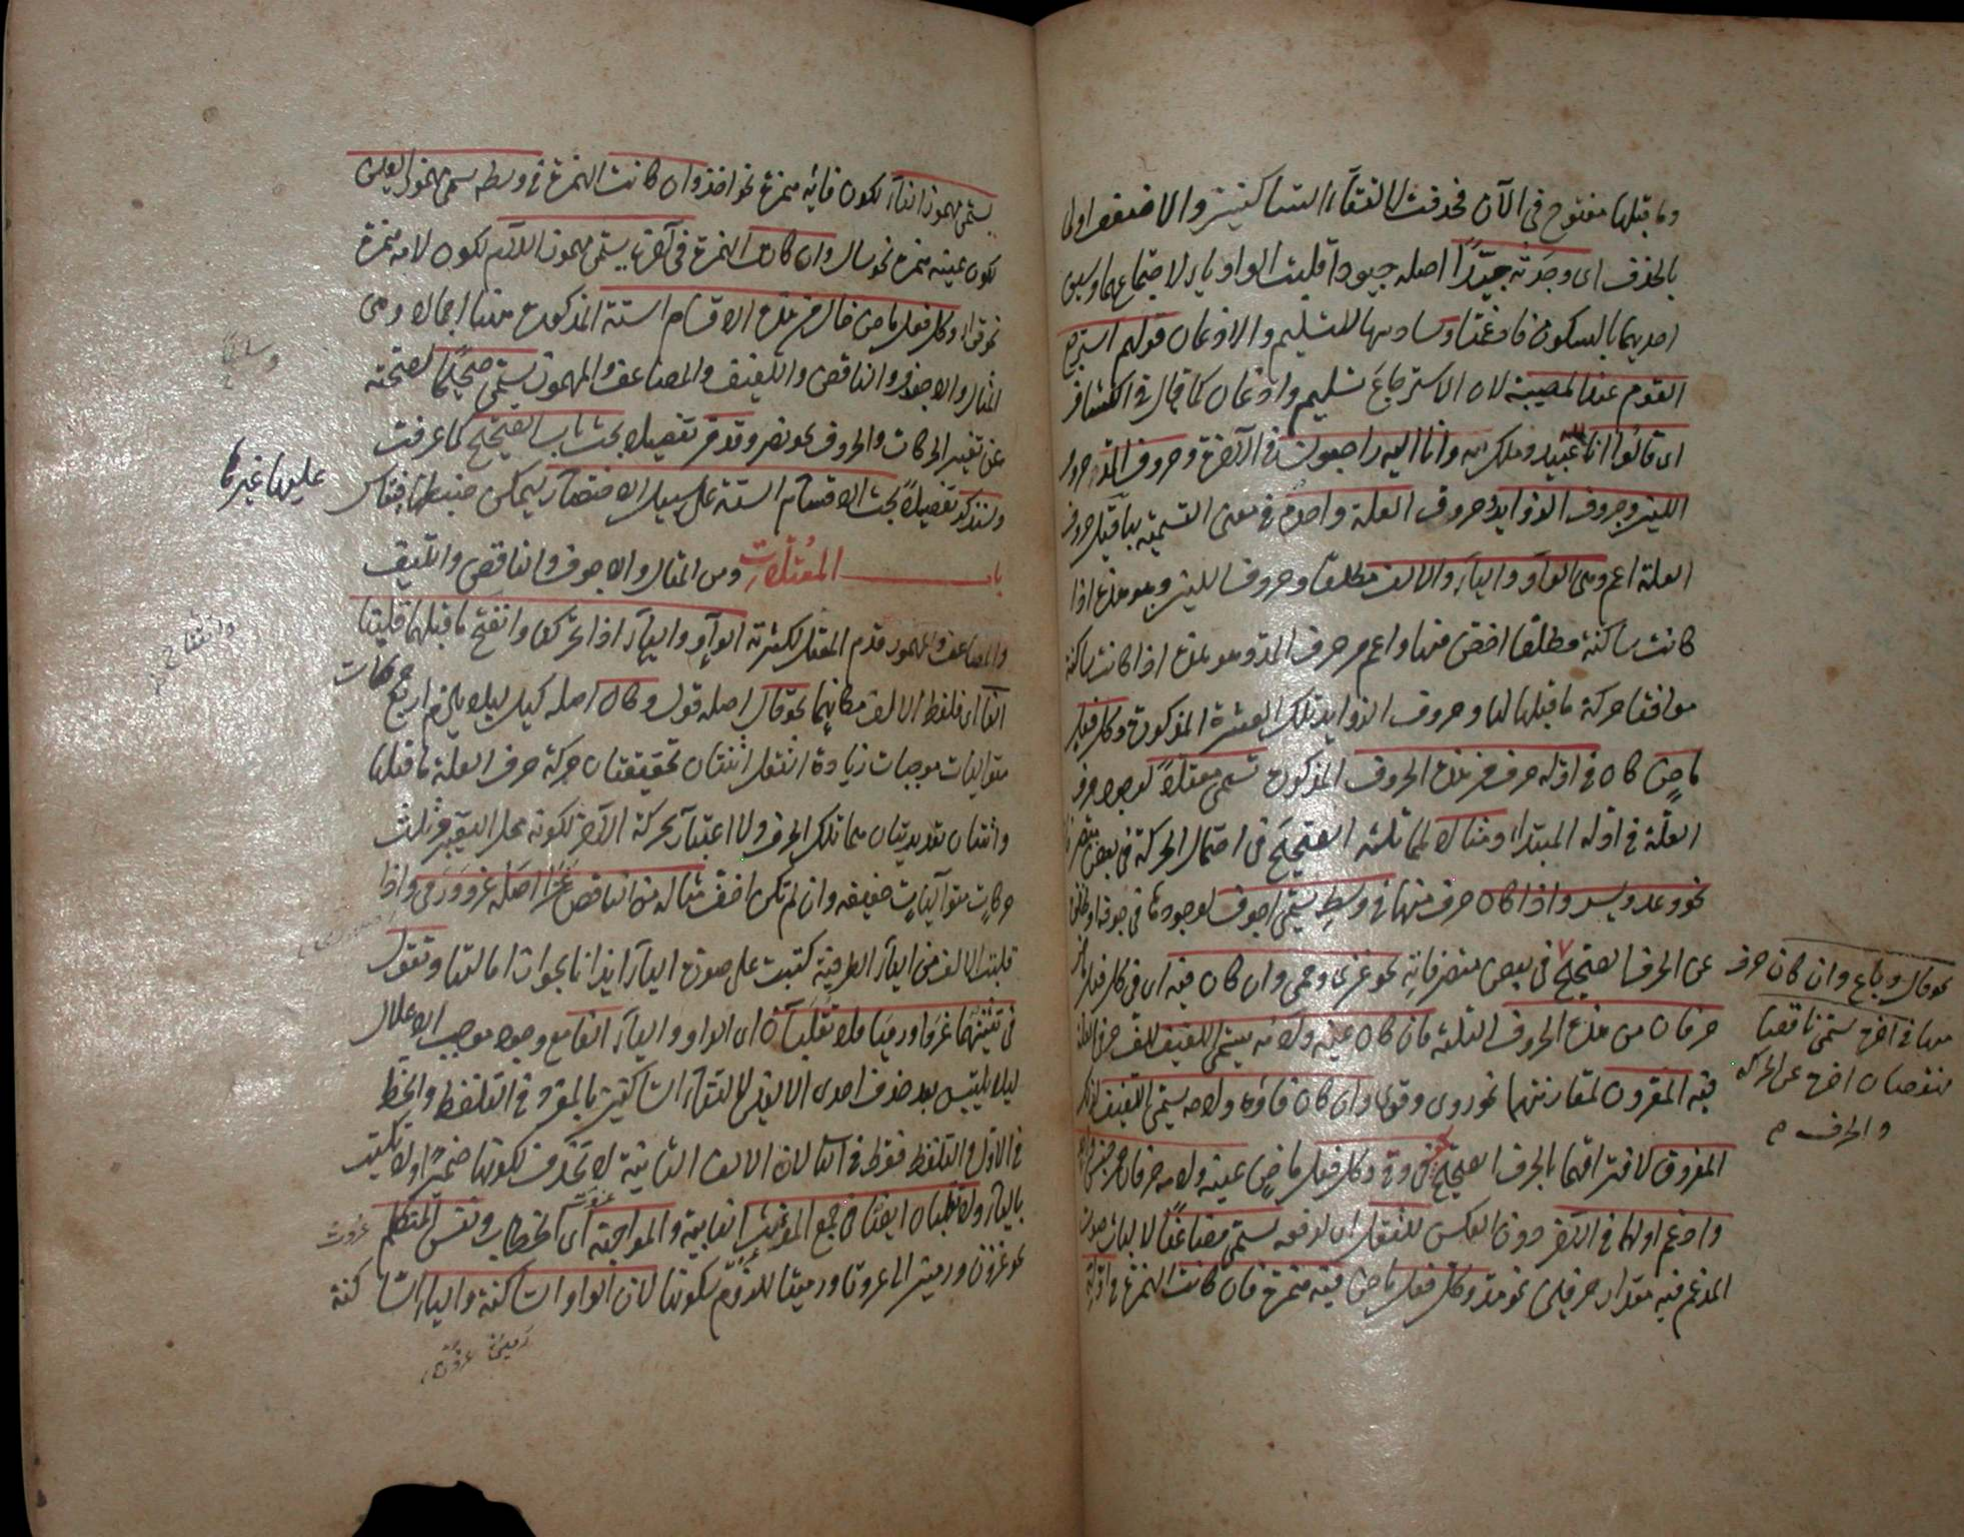 وما قبلها مفتوح في الآن فحذفت لالتقاء الساكنين والا ضعف اولى
بالحذف اى وجدته جيدا اصله جيود قلبت الواو ياء لاجتماعهما وسبق
احديهما بالسكون فادغمتا وسادسها للتسليم والاذعان قولهم استرجع
القوم عند المصيبة لان الاسترجاع تسليم واذعان كما قال في الكشاف
اى قالوا انا عبيد وملك لله وانا اليه راجعون في الآخرة وحروف المد وحروف
اللين وحروف الزوايد وحروف العلة واحد في معنى التسمية بها قيل حروف
العلة اعم وهى الواو والياء والالف مطلقا وحروف اللين وهو هذه اذا
كانت ساكنة مطلقا اخص منها واعم من حرف المد وهو هذه اذا كانت ساكنة
موافقا حركة ما قبلها لها وحروف الزوايد تلك العشرة المذكورة وكل فعل
ماض كان في اوله حرف من هذه الحروف المذكورة تسمى معتلا لوجود حرف
العلة في اوله المبتدا ومثالا لمماثلته الصحيح في احتمال الحركة في بعض
نحو وعد ويسر واذا كان حرف منها في وسطه يسمى اجوف لوجود ما في جوفه
عن الحرف الصحيح في بعض متصرفاته نحو غزى ورمى وان كان فيه اى في كل فعل
حرفان من هذه الحروف الثلثة فان كان عينه ولامه يسمى اللفيف للف حرف العلة
فيه المقرون لمقارنتهما نحو روى وقوى وان كان فاؤه ولامه يسمى اللفيف
المفروق لافتراقهما بالحرف الصحيح نحو وقى وكل فعل ماض عينه ولامه حرفان من جنس
وادغم اولهما في الآخر دون العكس للثقل اى لدفعه يسمى مضاعفا
المدغم فيه مقدار حرفين نحو مد وكل فعل ماض فيه همزة فان كانت الهمزة في اوله
نحو قال وباع وان كان حرف
منها في اخره يسمى ناقصا
لنقصان اخره عن الحركة
والحرف م
يسمى مهموز الفاء لكون فائه همزة نحو اخذ وان كانت الهمزة في وسطه يسمى مهموز العين
لكون عينه همزة نحو سال وان كانت الهمزة في آخره يسمى مهموز اللام لكون لامه همزة
نحو قرا وكل فعل ماض خال من هذه الاقسام الستة المذكورة هنا اجمالا وهى
المثال والاجوف والناقص واللفيف والمضاعف والمهموز يسمى صحيحا لصحته
عن تغير الحركات والحروف نحو نصر وقد مر تفصيل بحث باب الصحيح كما عرفت
وسنذكر تفصيلا بحث الاقسام الستة على سبيل الاختصار ليمكن ضبطها فيقاس
عليها غيرها
باب المعتلات وهى المثال والاجوف والناقص واللفيف
والمضاعف والمهموز قدم المعتل لكثرته الواو والياء اذا تحركتا وانفتح ما قبلهما قلبتا
الفا اى فلفظ الالف مكانهما نحو قال اصله قول وكال اصله كيل ليلا يلزم اربع حركات
متواليات موجبات زيادة الثقل اثنتان تحقيقتان حركة حرف العلة ما قبلها
واثنتان تقديريتان هما تلك الحرف ولا اعتبار بحركة الآخر لكونه محل التغير وثلث
حركات متواليات خفيفة وان لم تكن اخف مثاله من الناقص غزا اصله غزو ورمى واذا
قلبت الالف من الياء الطرفية كتبت على صورة الياء ايذانا بجواز امالتها وتقول
في تثنيتهما غزوا ورميا فلا تقلبان اى الواو والياء الفا مع وجود موجب الاعلال
ليلا يلتبس بعد حذف احدى الالفين لالتقاء الساكنين بالمفرد في التلفظ والخط
في الاول والتلفظ فقط في الثانى لان الالف الثانية لا تحذف لكونها ضميرا ولا تكتب
بالياء ولا تقلبان ايضا في جمع المؤنث الغايبة والمواجهة اى الخطاب ونفس المتكلم
نحو غزون ورمين الى غزونا ورمينا للزوم سكونها لان الواو الساكنة والياء الساكنة